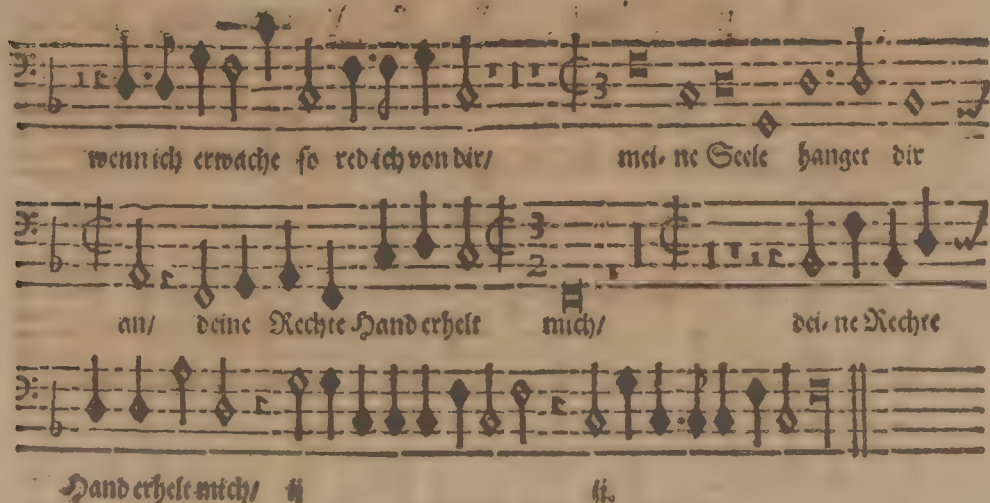 wenn ich erwache so red ich von dir/ mei- ne Seele hanget dir
an/ deine Rechte Hand erhelt mich/ dei- ne Rechte
Hand erhelt mich/ ij ij.